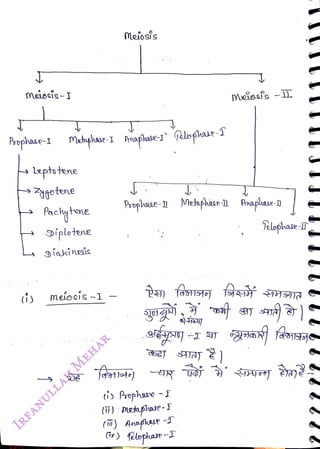 Meiosis
Meiosis-I Meiosis-II
Prophase-I Metaphase-I Anaphase-I Telophase-I
Leptotene
Zygotene
Pachytene
Diplotene
Diakinesis
Prophase-II Metaphase-II Anaphase-II
Telophase-II
(i) Meiosis-I - ऐसा विभाजन जिसमें समजात
गुणसूत्रों में कमी आ जाती हो।
की संख्या
अर्द्धसूत्री-I या न्यूनकारी विभाजन
कहा जाता है।
→ यह विभाजन चार पदों में समाप्त होता है-
(i) Prophase-I
(ii) Metaphase-I
(iii) Anaphase-I
(iv) Telophase-I
IRFANULLAH MEHAR